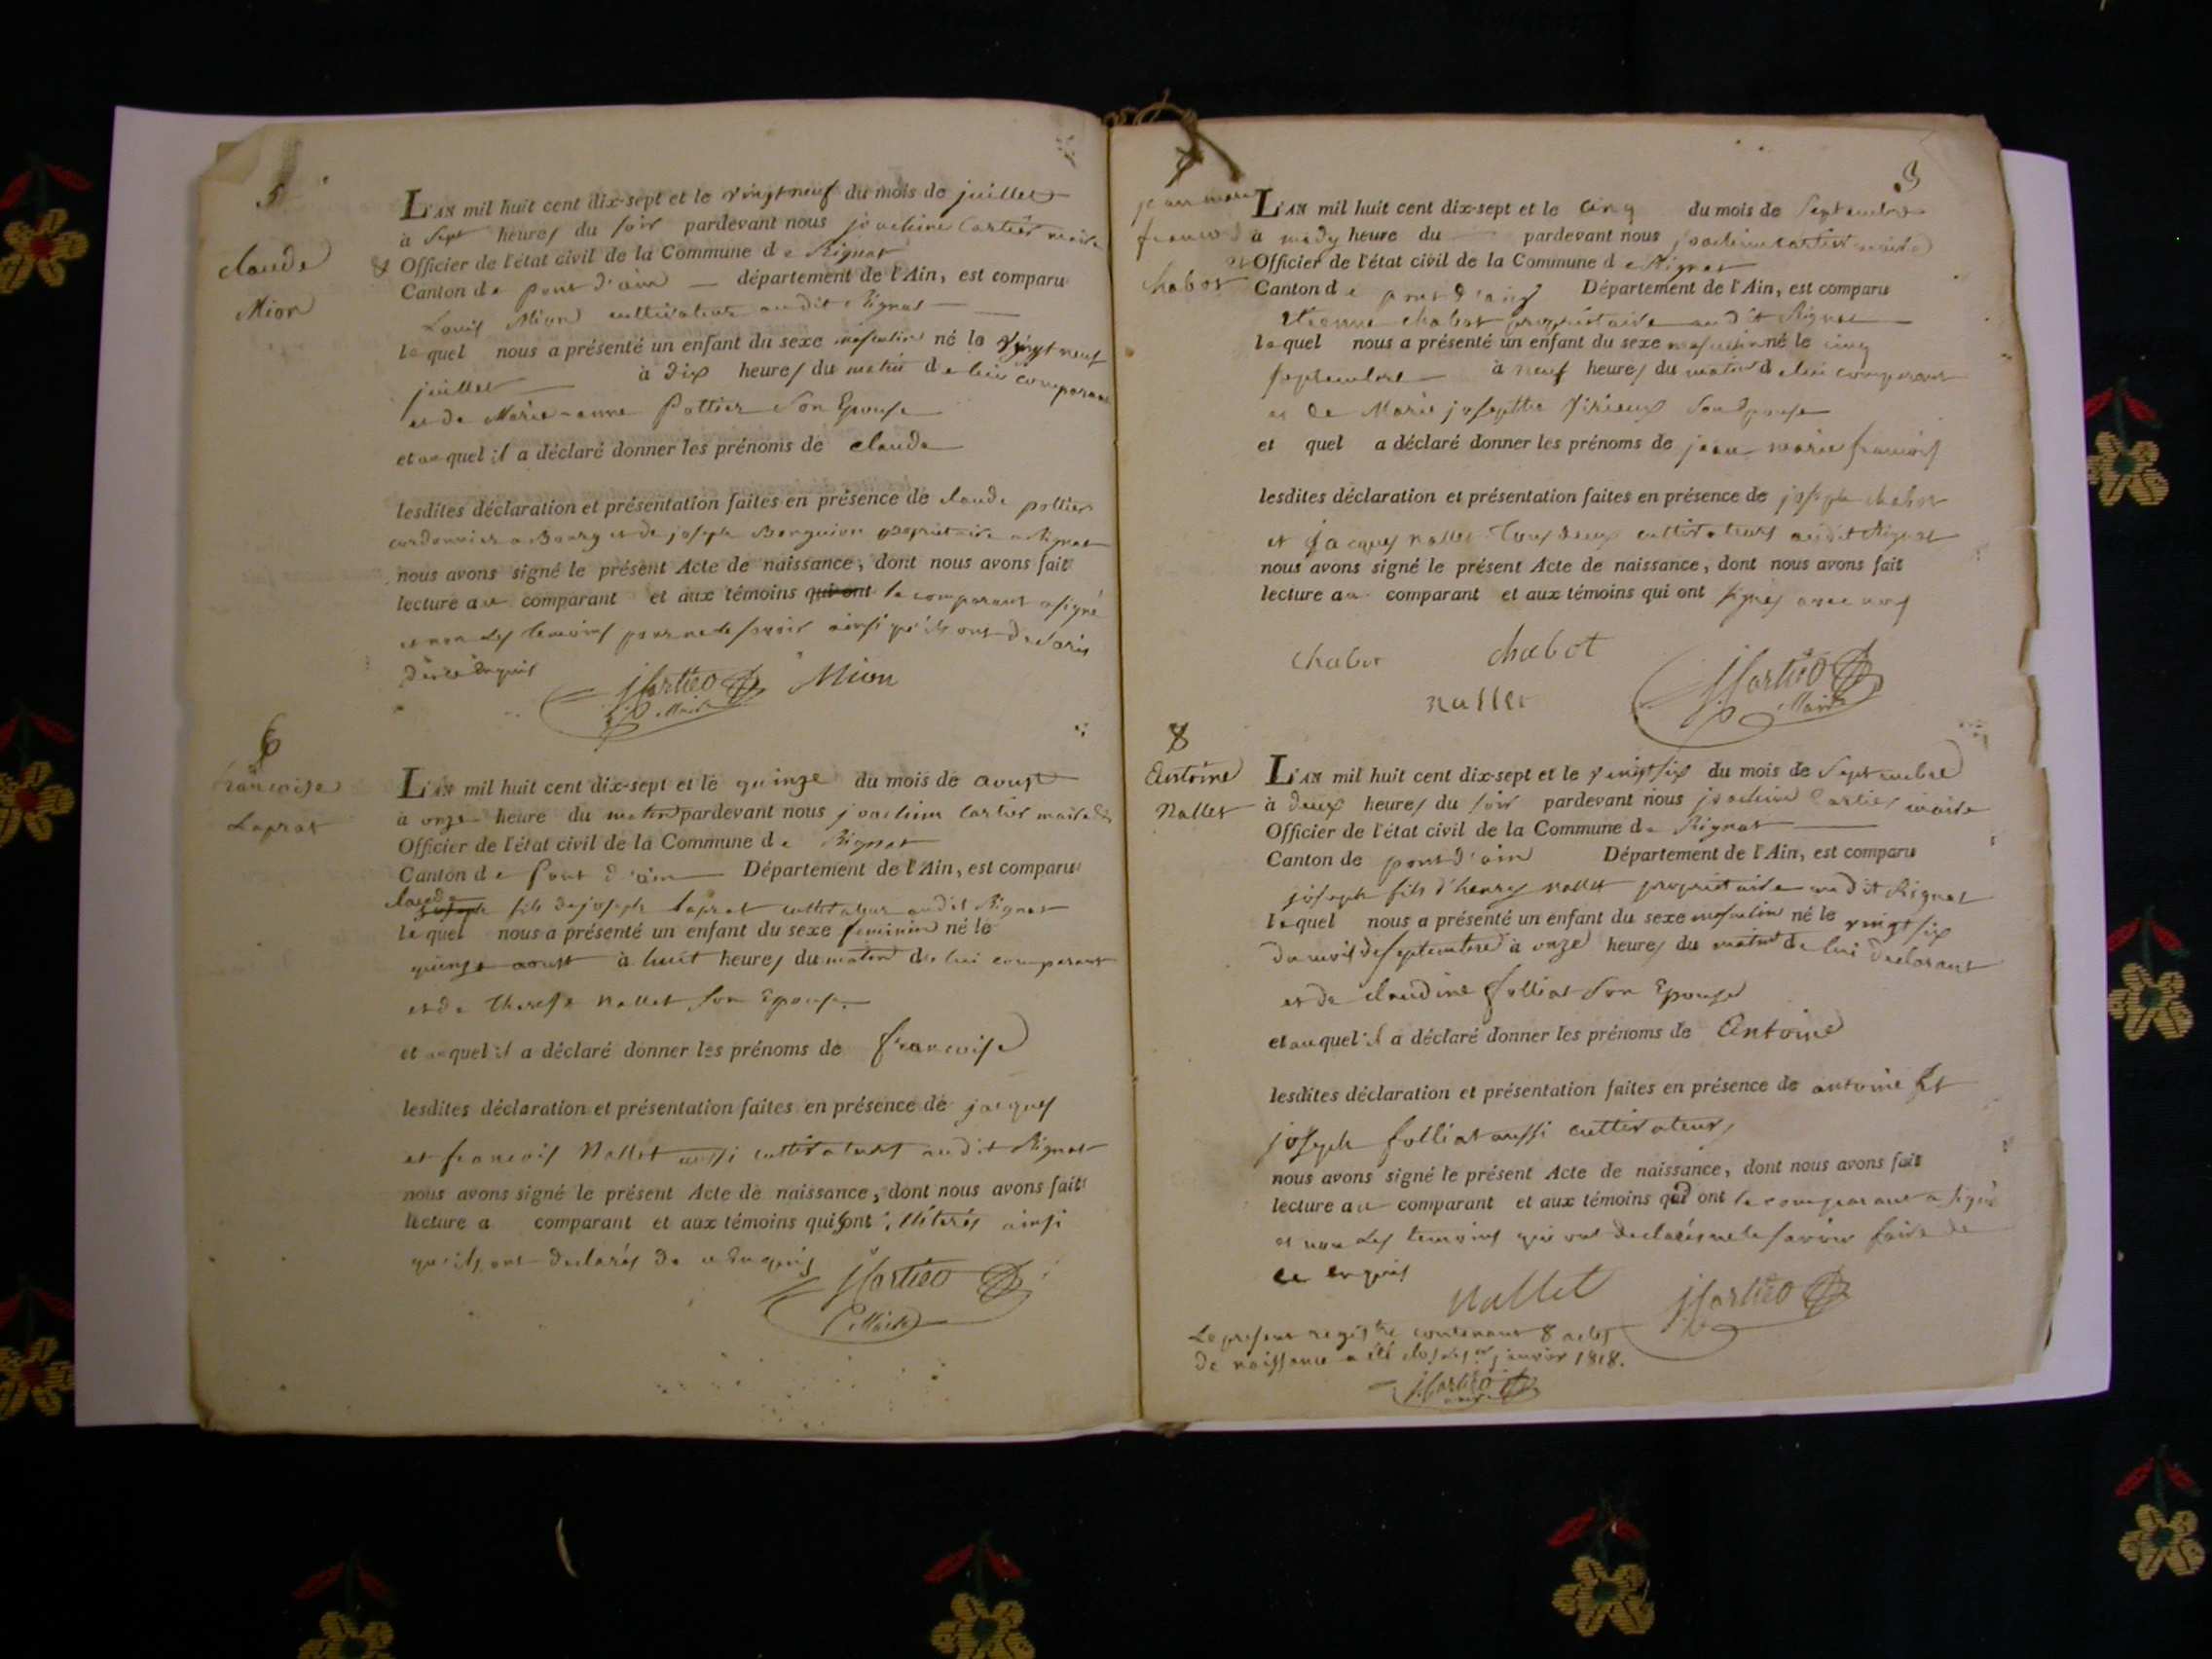 5
claude
Mion
L'AN mil huit cent dix-sept et le vingt neuf du mois de juillet
à Sept heures du soir pardevant nous joachim Cartier maire
& Officier de l'état civil de la Commune de Rignat
Canton de pont d'ain département de l'Ain, est comparu
Louis Mion cultivateur audit Rignat
lequel nous a présenté un enfant du sexe masculin né le vingt neuf
juillet à dix heures du matin de lui comparant
et de Marie-anne Pottier son Epouse
et auquel il a déclaré donner les prénoms de claude
lesdites déclaration et présentation faites en présence de claude pottier
cordonnier a Bourg et de joseph Berguion proprietaire a Rignat
nous avons signé le présent Acte de naissance, dont nous avons fait
lecture au comparant et aux témoins qui ont le comparant a signé
et non les temoins pour ne le savoir ainsi qu'ils ont declarés
de ce Enquis
JCartier Maire Mion
6
francoise
Laprat
L'AN mil huit cent dix-sept et le quinze du mois de aoust
à onze heure du matin pardevant nous joachim Cartier maire &
Officier de l'état civil de la Commune de Rignat
Canton de Pont d'ain Département de l'Ain, est comparu
claude
joseph fils de joseph Laprat cultivateur audit Rignat
lequel nous a présenté un enfant du sexe feminin né le
quinze aoust à huit heures du matin de lui comparant
et de Therese Nallet son Epouse
et auquel il a déclaré donner les prénoms de francoise
lesdites déclaration et présentation faites en présence de jacques
et francois Nallet aussi cultivateurs audit Rignat
nous avons signé le présent Acte de naissance, dont nous avons fait
lecture a comparant et aux témoins qui sont illiterés ainsi
qu'ils ont declarés de ce Enquis
JCartier
Maire
3
7
jean marie
francois
chabot
L'AN mil huit cent dix-sept et le cinq du mois de Septembre
à midy heure du pardevant nous joachim Cartier maire
et Officier de l'état civil de la Commune de Rignat
Canton de pont d'ain Département de l'Ain, est comparu
Etienne chabot proprietaire audit Rignat
lequel nous a présenté un enfant du sexe masculin né le cinq
septembre à neuf heures du matin de lui comparant
et de Marie josepthe Virieux son Epouse
et quel a déclaré donner les prénoms de jean marie francois
lesdites déclaration et présentation faites en présence de joseph chabot
et jacques nallet tous deux cultivateurs audit Rignat
nous avons signé le présent Acte de naissance, dont nous avons fait
lecture au comparant et aux témoins qui ont signés avec nous
chabot chabot
nallet JCartier
Maire
8
Antoine
Nallet
L'AN mil huit cent dix-sept et le vingt six du mois de Septembre
à deux heures du soir pardevant nous joachim Cartier maire
Officier de l'état civil de la Commune de Rignat
Canton de pont d'ain Département de l'Ain, est comparu
joseph fils d'henry nallet proprietaire audit Rignat
lequel nous a présenté un enfant du sexe masculin né le vingt six
du mois de septembre à onze heures du matin de lui declarant
et de claudine folliat son Epouse
et auquel il a déclaré donner les prénoms de Antoine
lesdites déclaration et présentation faites en présence de antoine Et
joseph folliat aussi cultivateurs
nous avons signé le présent Acte de naissance, dont nous avons fait
lecture au comparant et aux témoins qui ont le comparant a signé
et non les temoins qui ont declarés ne le savoir faire de
ce enquis
Nallet JCartier
Le present registre contenant 8 actes
de naissance a été clos le 1er janvier 1818.
JCartier
maire